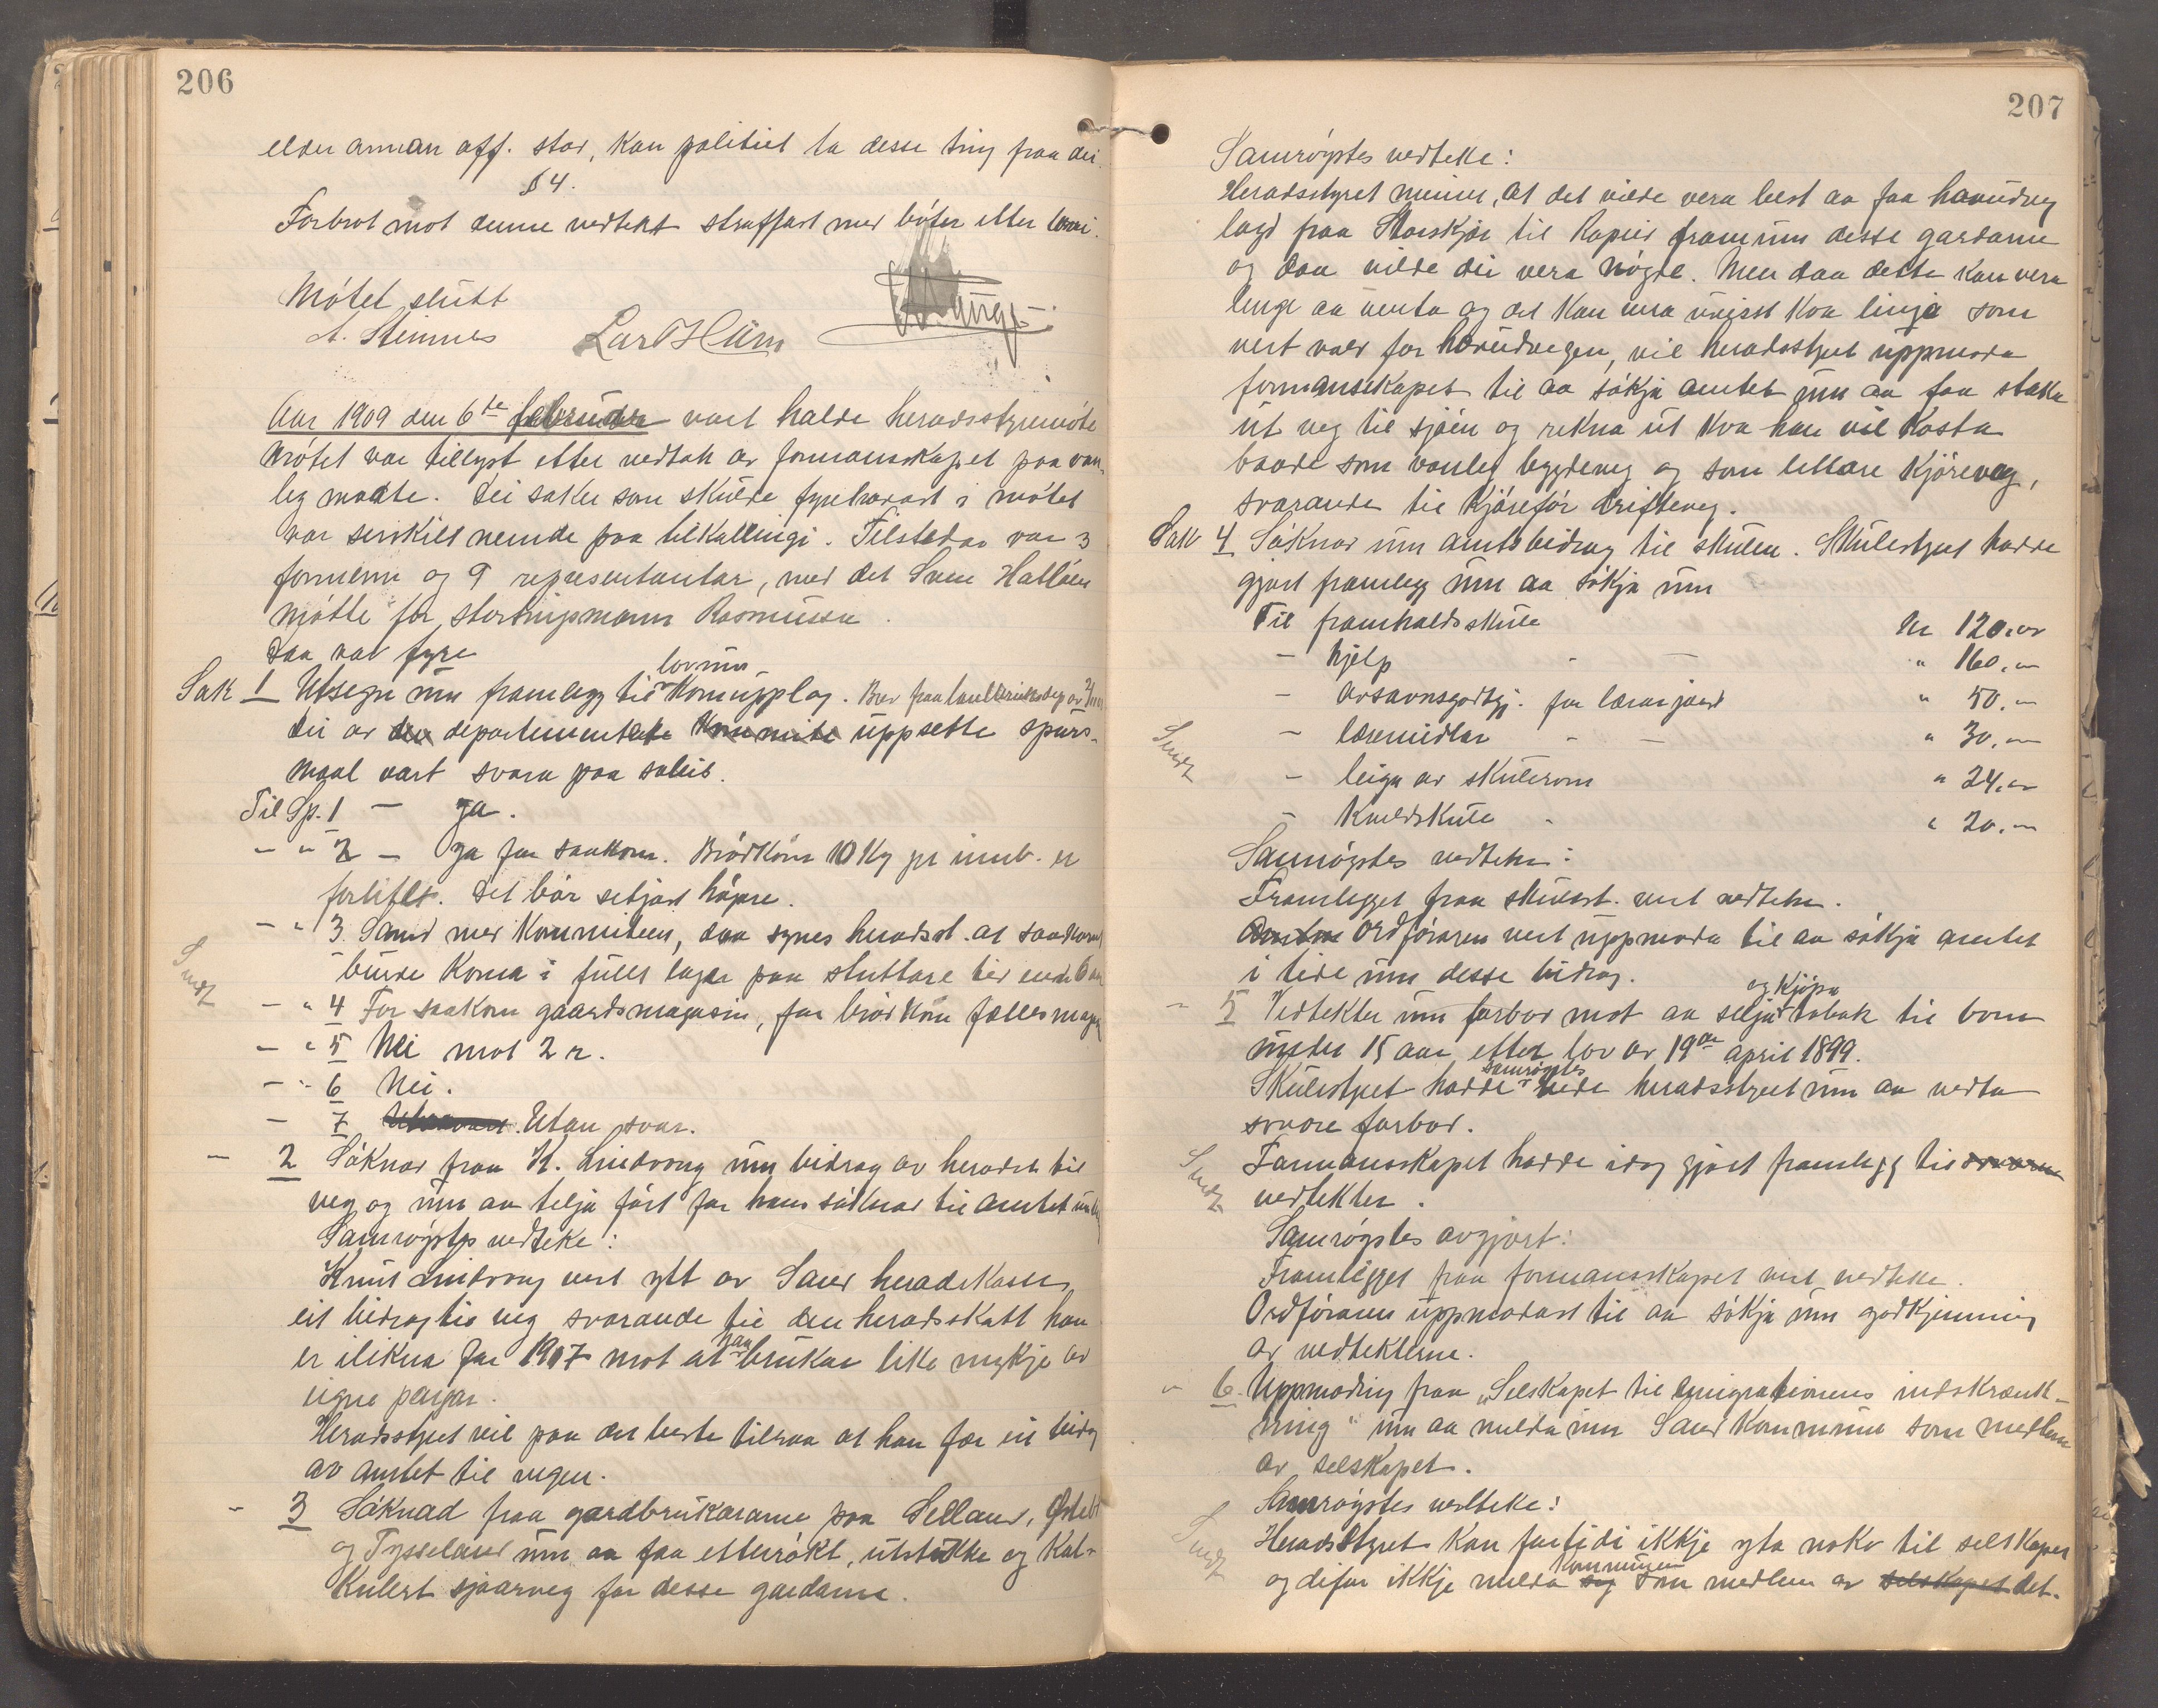 206
elder annan off. stad, kan politiet ta desse ting fraa dei.
§ 4.
Forbrot mot denne vedtekt straffast med böter etter lovi.
Mötet slutt
A. Steinnes Lars Hüm
Aar 1909 den 6te februar vart halde heradsstyremöte
Mötet var tillyst etter vedtak av formannskapet paa van-
leg maate. Dei saker som skulde fyrehavast i mötet
var serskilt nemde paa tilkallingi. Tilstadar var 3
formenn og 9 representantar, med det Svein Hatlöen
mötte for stortingsmann Rasmussen.
Daa var fyre
Sak 1 Utsegn um framlegg til lov um Kornupplag. Brev fraa landbruksdep av
dei av den departementale Kommite uppsette spurs-
maal vart svara paa soleis.
Til Sp. 1 – ja.
– " 2 – ja for saakorn. Brödkorn 10 Kg pr innb. er
forlitet. Det bör setjast högre.
– " 3. Samd med Kommiteen, daa synes heradsst. at saakornet
burde koma i fullt lager paa stuttare tid enn 6 aar
– " 4 For saakorn gaardsmagasin, for brödkorn fællesmagasin
– " 5 Nei mot 2 r.
– " 6 Nei.
– 7 Utan svar.
– 2 Söknad fraa K. Lindvang um bidrag av heradet til
veg og um aa telja fört for hans söknad til amtet um
Samröystes vedteke:
Knut Lindvang vert ytt av Sand heradskasse
eit bidrag til veg svarande til den heradsskatt han
er ilikna for 1907 mot at han brukar like mykje av
eigne pengar.
Heradsstyret vil paa det beste tilraa at han fær eit bidrag
av amtet til vegen.
– 3 Söknad fraa gardbrukarane paa Selland, Östebö
og Tysseland um aa faa ettersökt, utstukke og kal-
kulert sjöarveg for desse gardane.
Sendt
207
Samröystes vedteke:
Heradsstyret meiner, at det vilde vera best aa faa hovudveg
lagd fraa Storskjær til Ropeid framum desse gardane
og daa vilde dei vera nögde. Men daa dette kan vera
lenge aa venta og det kan vera uvisst kva linja som
vert vald for hovudvegen, vil heradsstyret uppmoda
formannskapet til aa sökja amtet um aa faa stukke
ut veg til sjöen og rekna ut kva han vil kosta
baade som vanleg bygdeveg og som lettare Kjöreveg,
svarande til Kjöreför drifteveg.
Sak 4 Söknad um amtsbidrag til skulen. Skulestyret hadde
gjort framlegg um aa sökja um
Til framhaldsskule Kr 120,00
– hjelp – – " 160,00
– avsavnsgodtgj. for lærarjord " 50,00
– læremidlar – – " 30,00
– leiga av skulerom " 24,00
– Kveldskule – " 20,00
Sendt
Samröystes vedteke:
Framlegget fraa skulest. vert vedteke.
Ordföraren vert uppmoda til aa sökja amtet
i tide um desse bidrag.
– 5 Vedtekter um forbod mot aa selja og kjöpa tobak til born
under 15 aar, etter lov av 19de april 1899.
Skulestyret hadde samröystes bede heradsstyret um aa vedta
svore forbod.
Sendt
Formannskapet hadde idag gjort framlegg til
vedtekter.
Samröystes avgjort:
Framlegget fraa formannskapet vert vedteke.
Ordföraren uppmodast til aa sökja um godkjenning
av vedtektene.
– 6. Uppmoding fraa "Selskapet til emigrationens indskrænk-
ning" um aa melda inn Sand Kommune som medlem
av selskapet.
Samröystes vedteke:
Sendt
Heradsstyret kan fortidi ikkje yta noko til selskapet
og difor ikkje melda seg Kommunen som medlem av selskapet det.